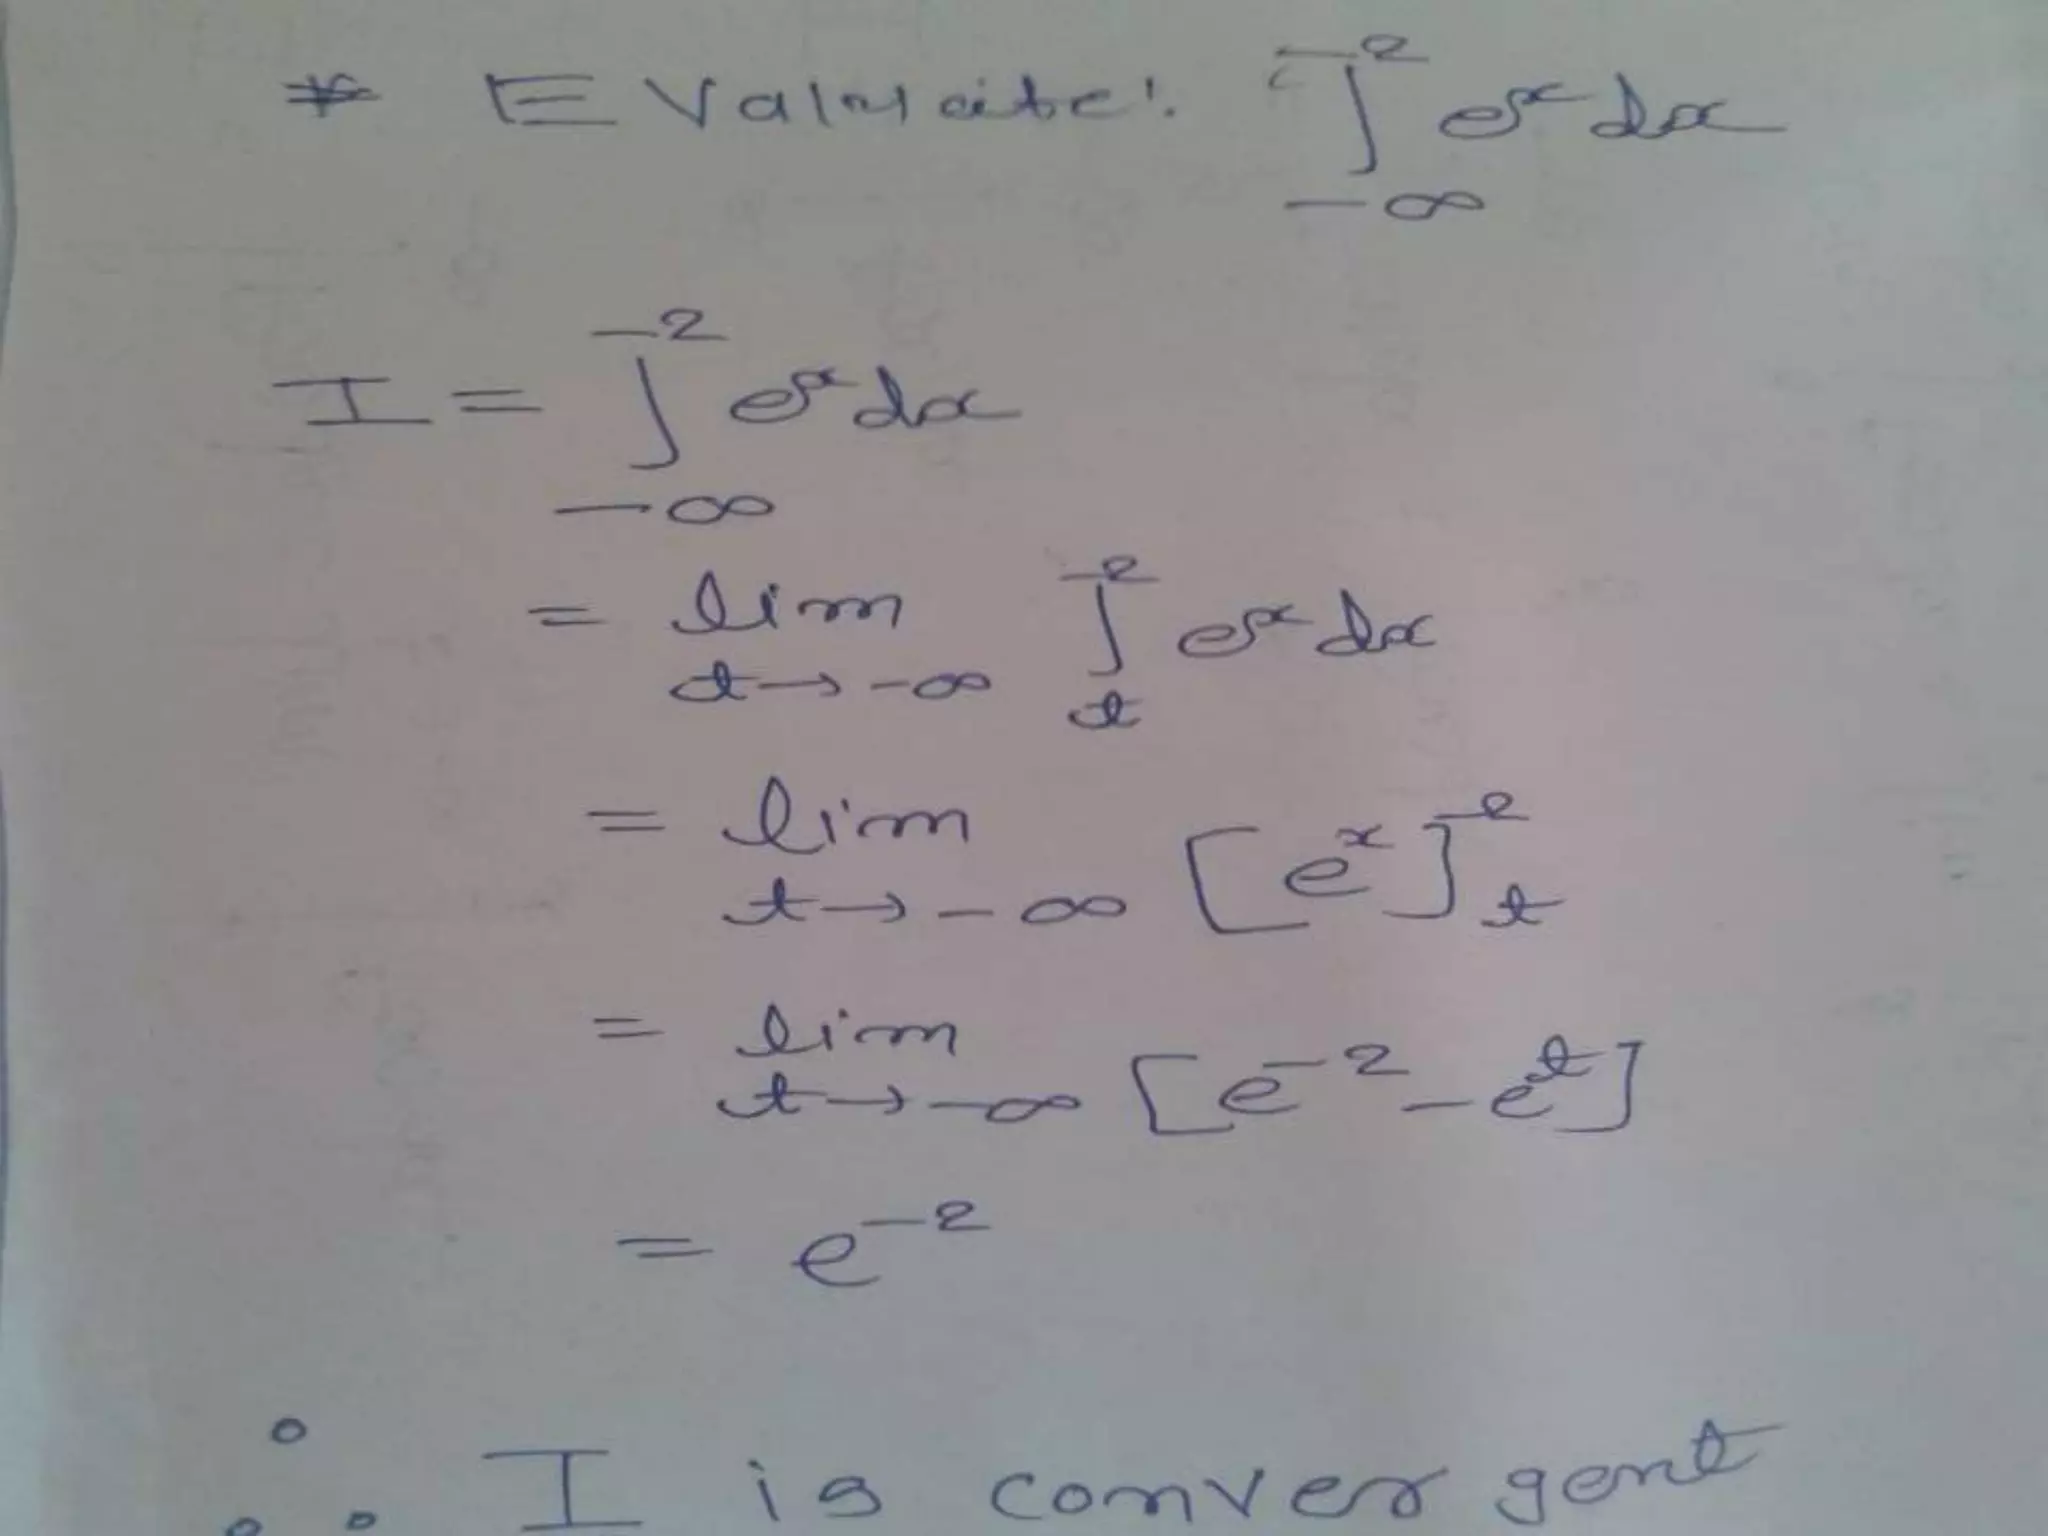 * Evaluate: ∫_{-∞}^{-2} e^x dx
I = ∫_{-∞}^{-2} e^x dx
= lim_{t→-∞} ∫_t^{-2} e^x dx
= lim_{t→-∞} [e^x]_t^{-2}
= lim_{t→-∞} [e^{-2} - e^t]
= e^{-2}
∴ I is convergent